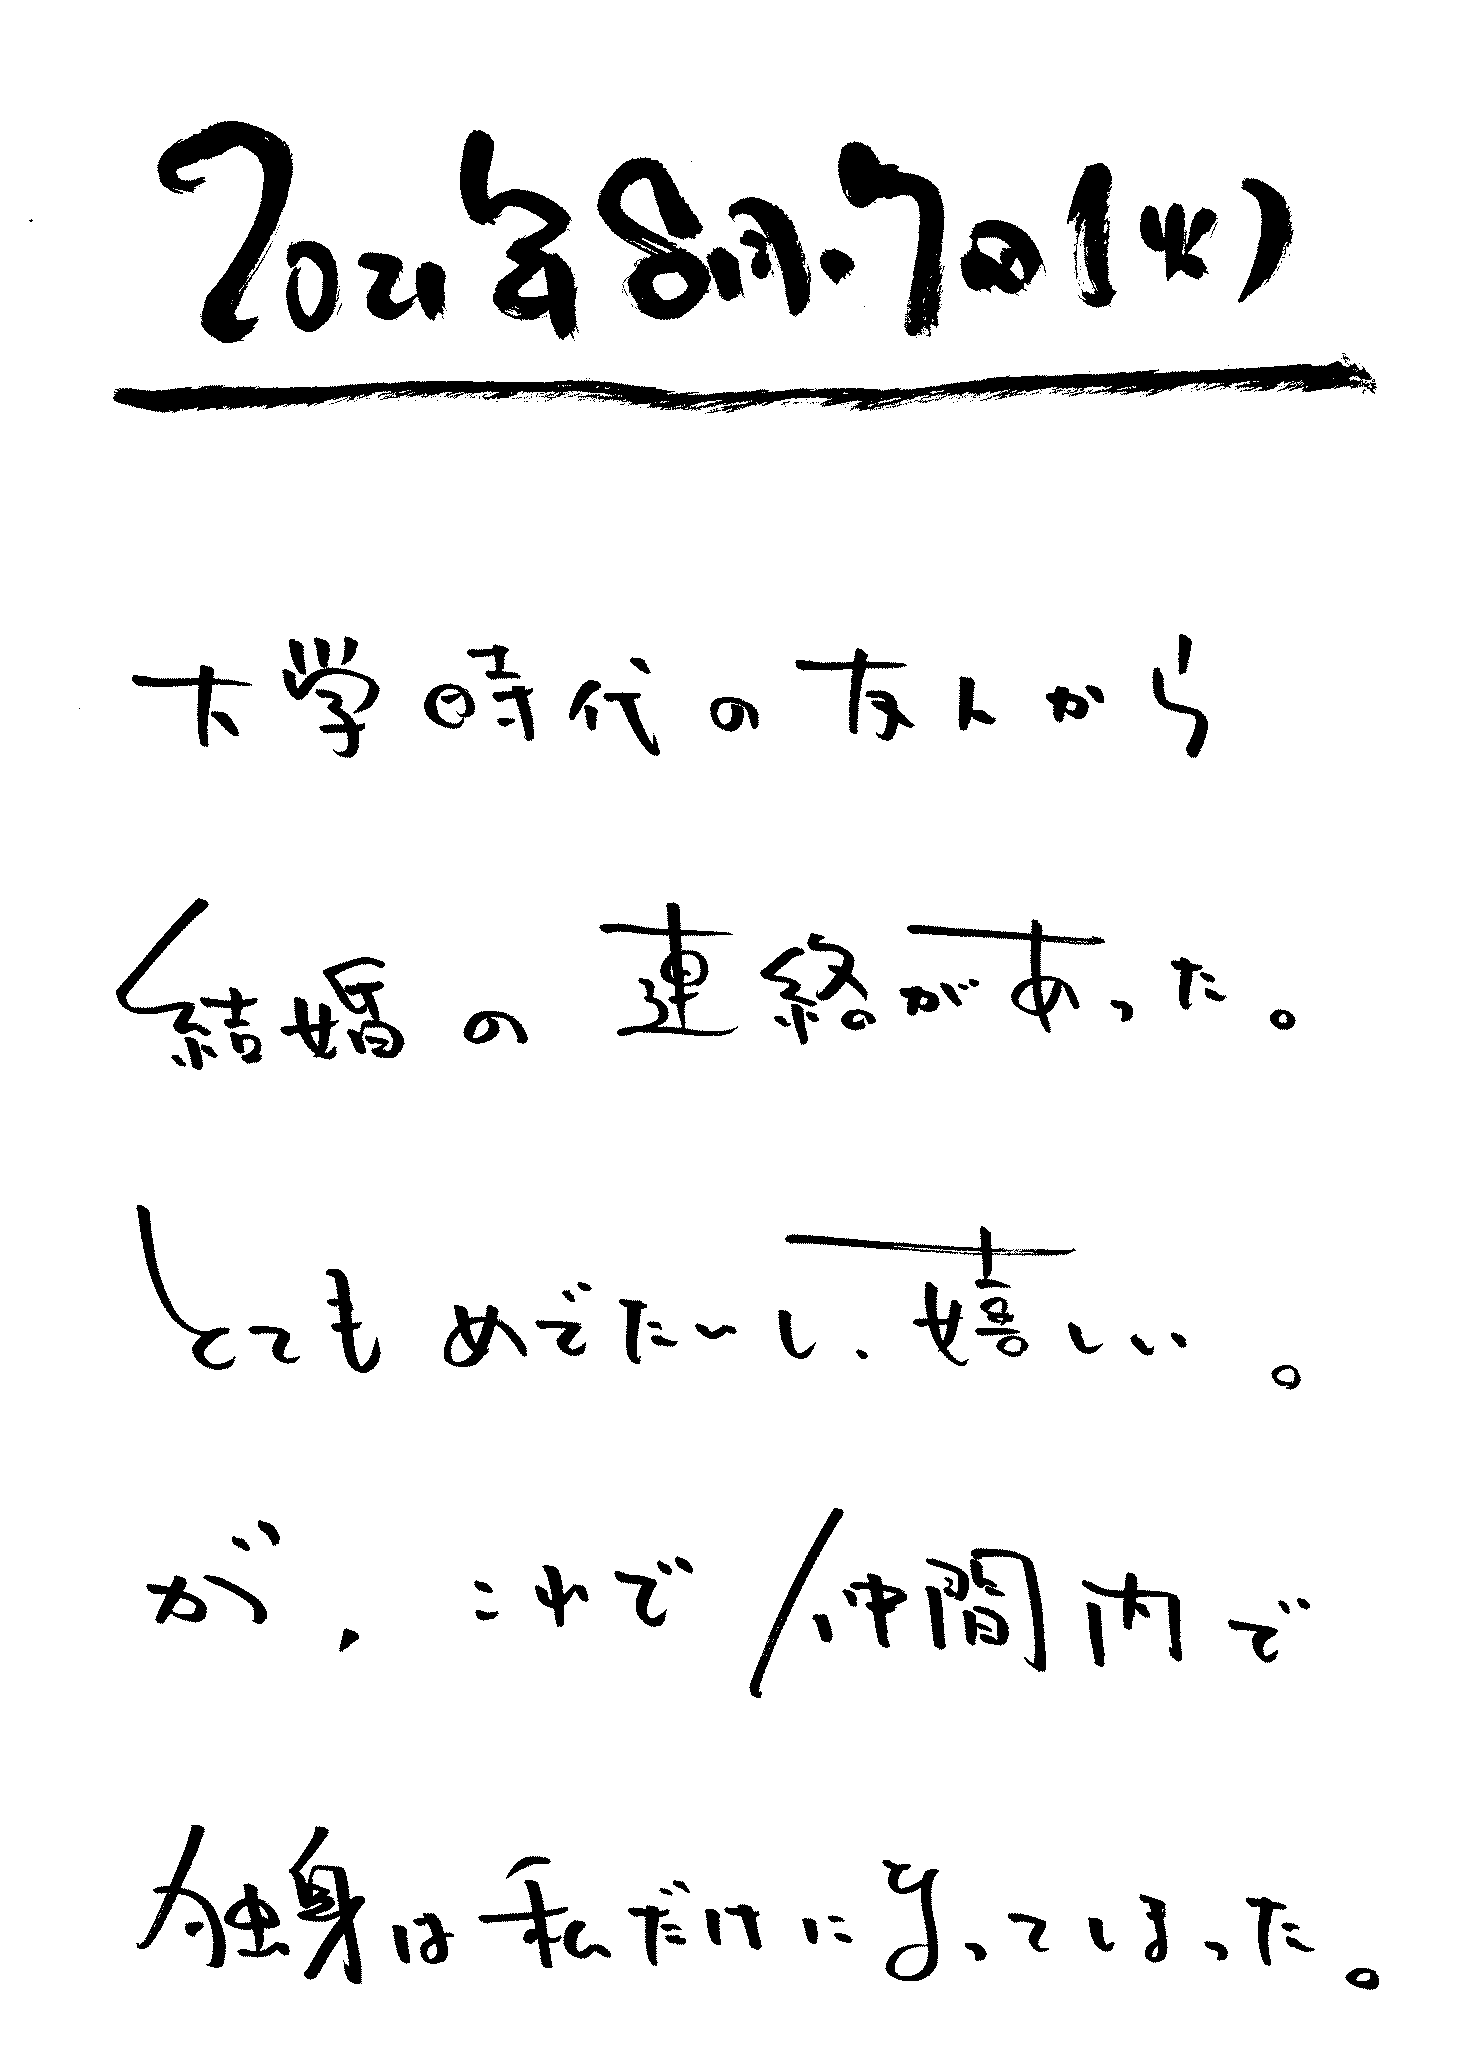 2021年8月17日(火)
大学時代の友人から
結婚の連絡があった。
とてもめでたいし、嬉しい。
が、これで仲間内で
独身は私だけになってしまった。